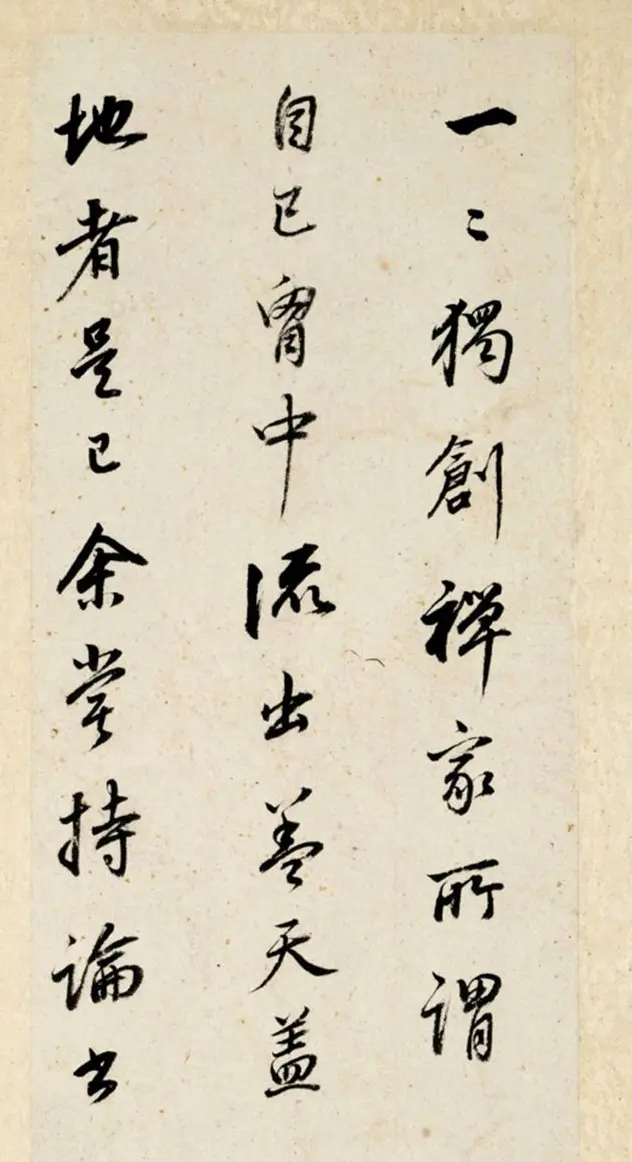 一〻獨創禪家所謂
自己胷中流出葢天蓋
地者是已余嘗持論書